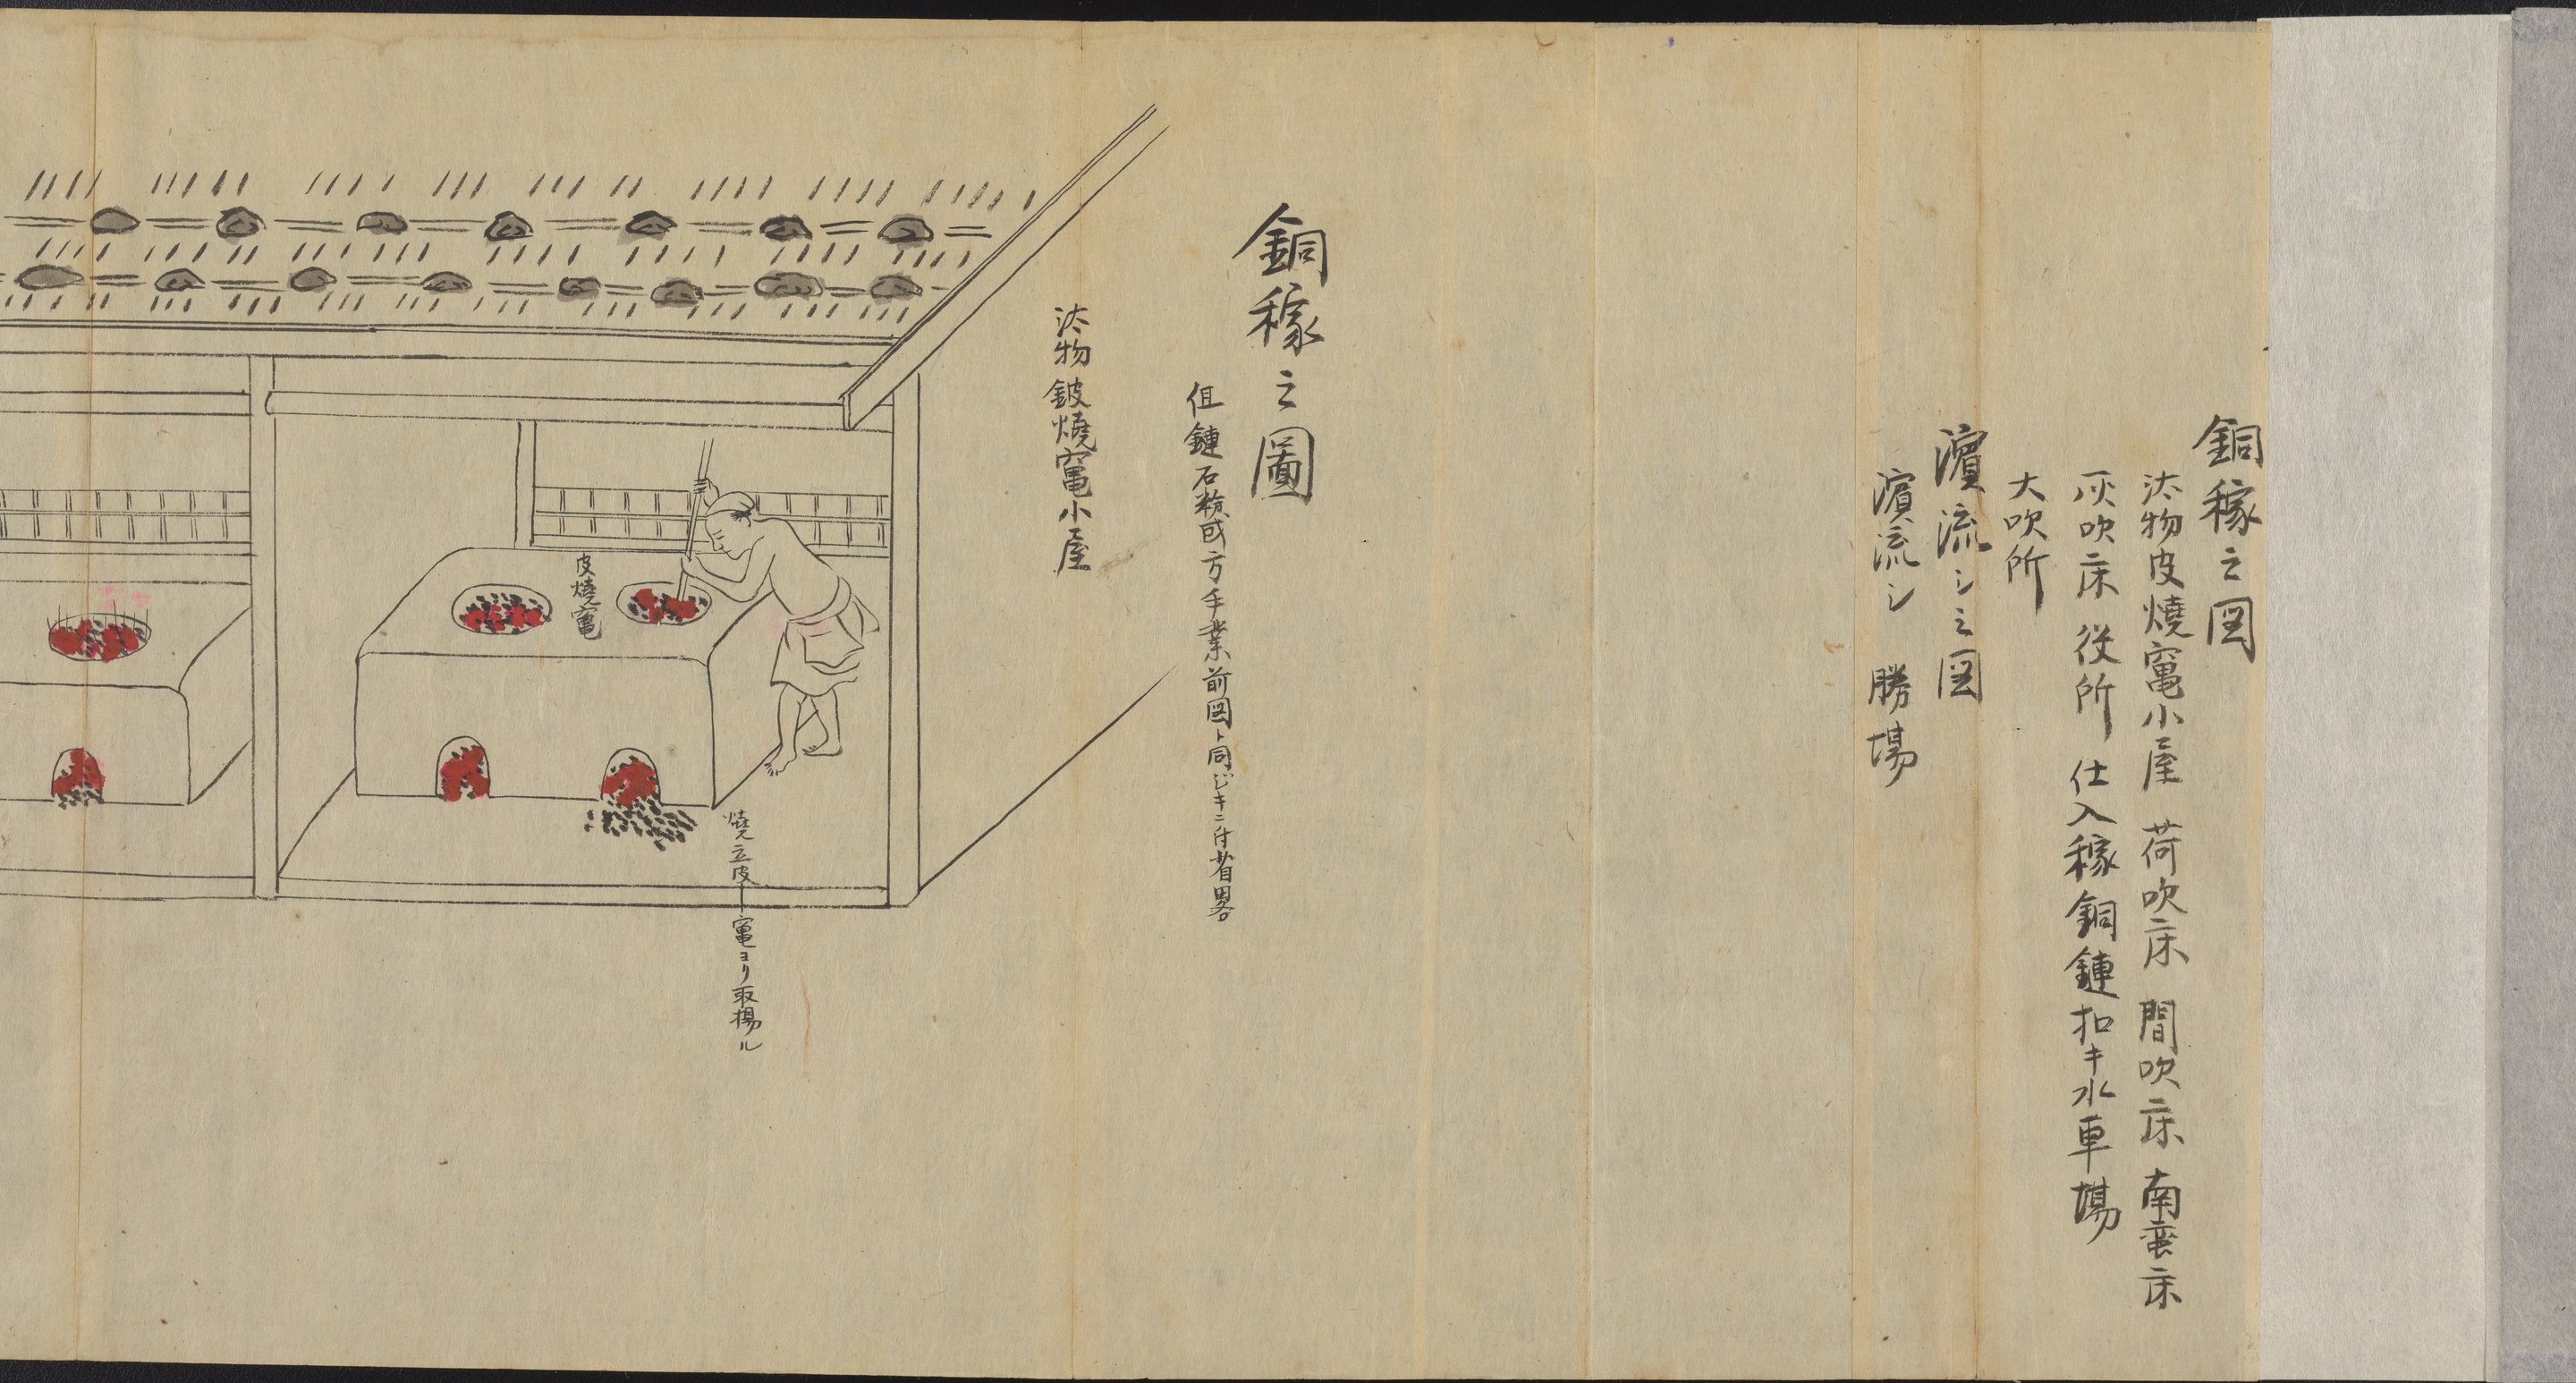 銅稼之図
汰物皮燒竃小屋 荷吹床 間吹床 南蛮床
灰吹床 役所 仕入稼銅鏈扣キ水車場
大吹所
濵流シ之図
濵流シ 勝場
銅稼之圖
但鏈石粉成方手業前図ト同ジキニ付省畧
汰物鈹燒竃小屋
皮燒竃
燒立皮竃ヨリ取揚ル